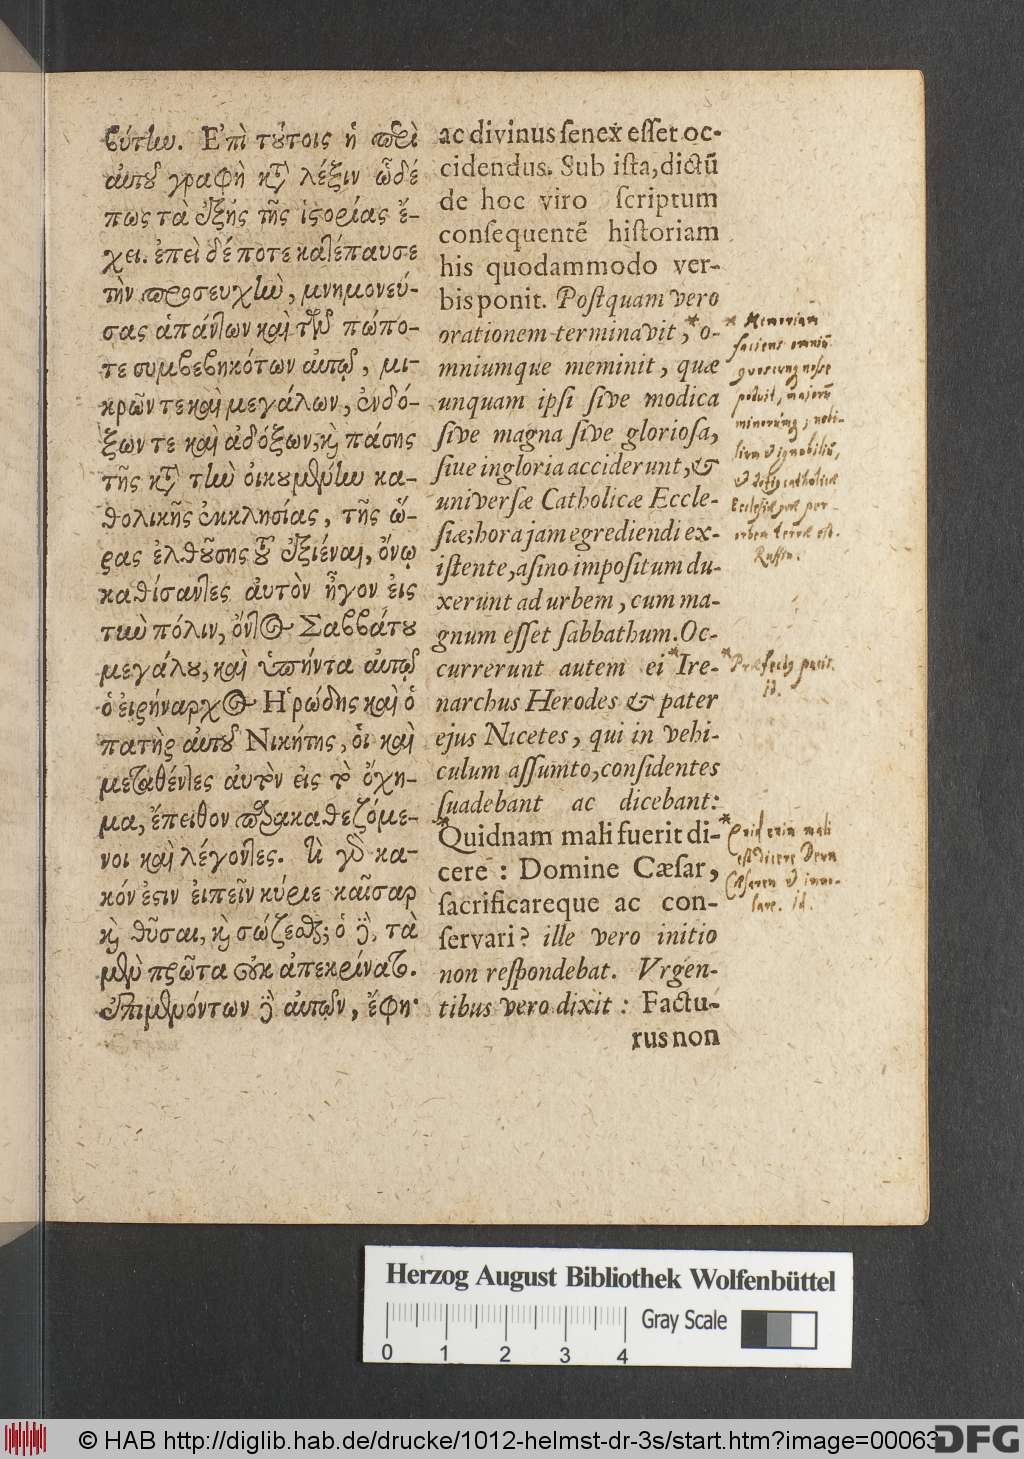 βύτην. Ἐπὶ τούτοις ἡ περὶ
αὐτοῦ γραφὴ κατὰ λέξιν ὧδέ
πως τὰ ἑξῆς τῆς ἱστορίας ἔ-
χει. ἐπεὶ δέ ποτε κατέπαυσε
τὴν προσευχὴν, μνημονεύ-
σας ἁπάντων καὶ τῶν πώπο-
τε συμβεβηκότων αὐτῷ, μι-
κρῶν τε καὶ μεγάλων, ἐνδό-
ξων τε καὶ ἀδόξων, καὶ πάσης
τῆς κατὰ τὴν οἰκουμένην κα-
θολικῆς ἐκκλησίας, τῆς ὥ-
ρας ἐλθούσης τοῦ ἐξιέναι, ὄνῳ
καθίσαντες αὐτὸν ἦγον εἰς
τὴν πόλιν, ὄντος Σαββάτου
μεγάλου, καὶ ὑπήντα αὐτῷ
ὁ εἰρήναρχος Ἡρώδης καὶ ὁ
πατὴρ αὐτοῦ Νικήτης, οἱ καὶ
μεταθέντες αὐτὸν εἰς τὸ ὄχη-
μα, ἔπειθον παρακαθεζόμε-
νοι καὶ λέγοντες. τί γὰρ κα-
κόν ἐστιν εἰπεῖν κύριε καῖσαρ
καὶ θῦσαι, καὶ σώζεσθαι; ὁ δὲ, τὰ
μὲν πρῶτα οὐκ ἀπεκρίνατο.
ἐπιμενόντων δὲ αὐτῶν, ἔφη·
ac divinus senex esset oc-
cidendus. Sub ista, dictũ
de hoc viro scriptum
consequentẽ historiam
his quodammodo ver-
bis ponit. Postquam vero
orationem terminavit,* o-
mniumque meminit, quæ
unquam ipsi sive modica
sive magna sive gloriosa,
siue ingloria acciderunt, &
universæ Catholicæ Eccle-
siæ; hora jam egrediendi ex-
istente, asino impositum du-
xerunt ad urbem, cum ma-
gnum esset sabbathum. Oc-
currerunt autem ei *Ire-
narchus Herodes & pater
ejus Nicetes, qui in vehi-
culum assumto, considentes
suadebant ac dicebant:
*Quidnam mali fuerit di-
cere : Domine Cæsar,
sacrificareque ac con-
servari? ille vero initio
non respondebat. Vrgen-
tibus vero dixit : Factu-
rus non
* Memoriam
faciens omniũ
quoscunq nosse
potuit, majorũ
minorumq, nobi-
lium & ignobiliũ,
Ecclesiæ quæ per
orbem terræ est.
Ruffin.
* Præfectq pacis.
id.
* Quid enim mali
est dicere Deum
Cæsarem & immo-
lare. id.
Herzog August Bibliothek Wolfenbüttel
Gray Scale
0 1 2 3 4
© HAB http://diglib.hab.de/drucke/1012-helmst-dr-3s/start.htm?image=00063
DFG